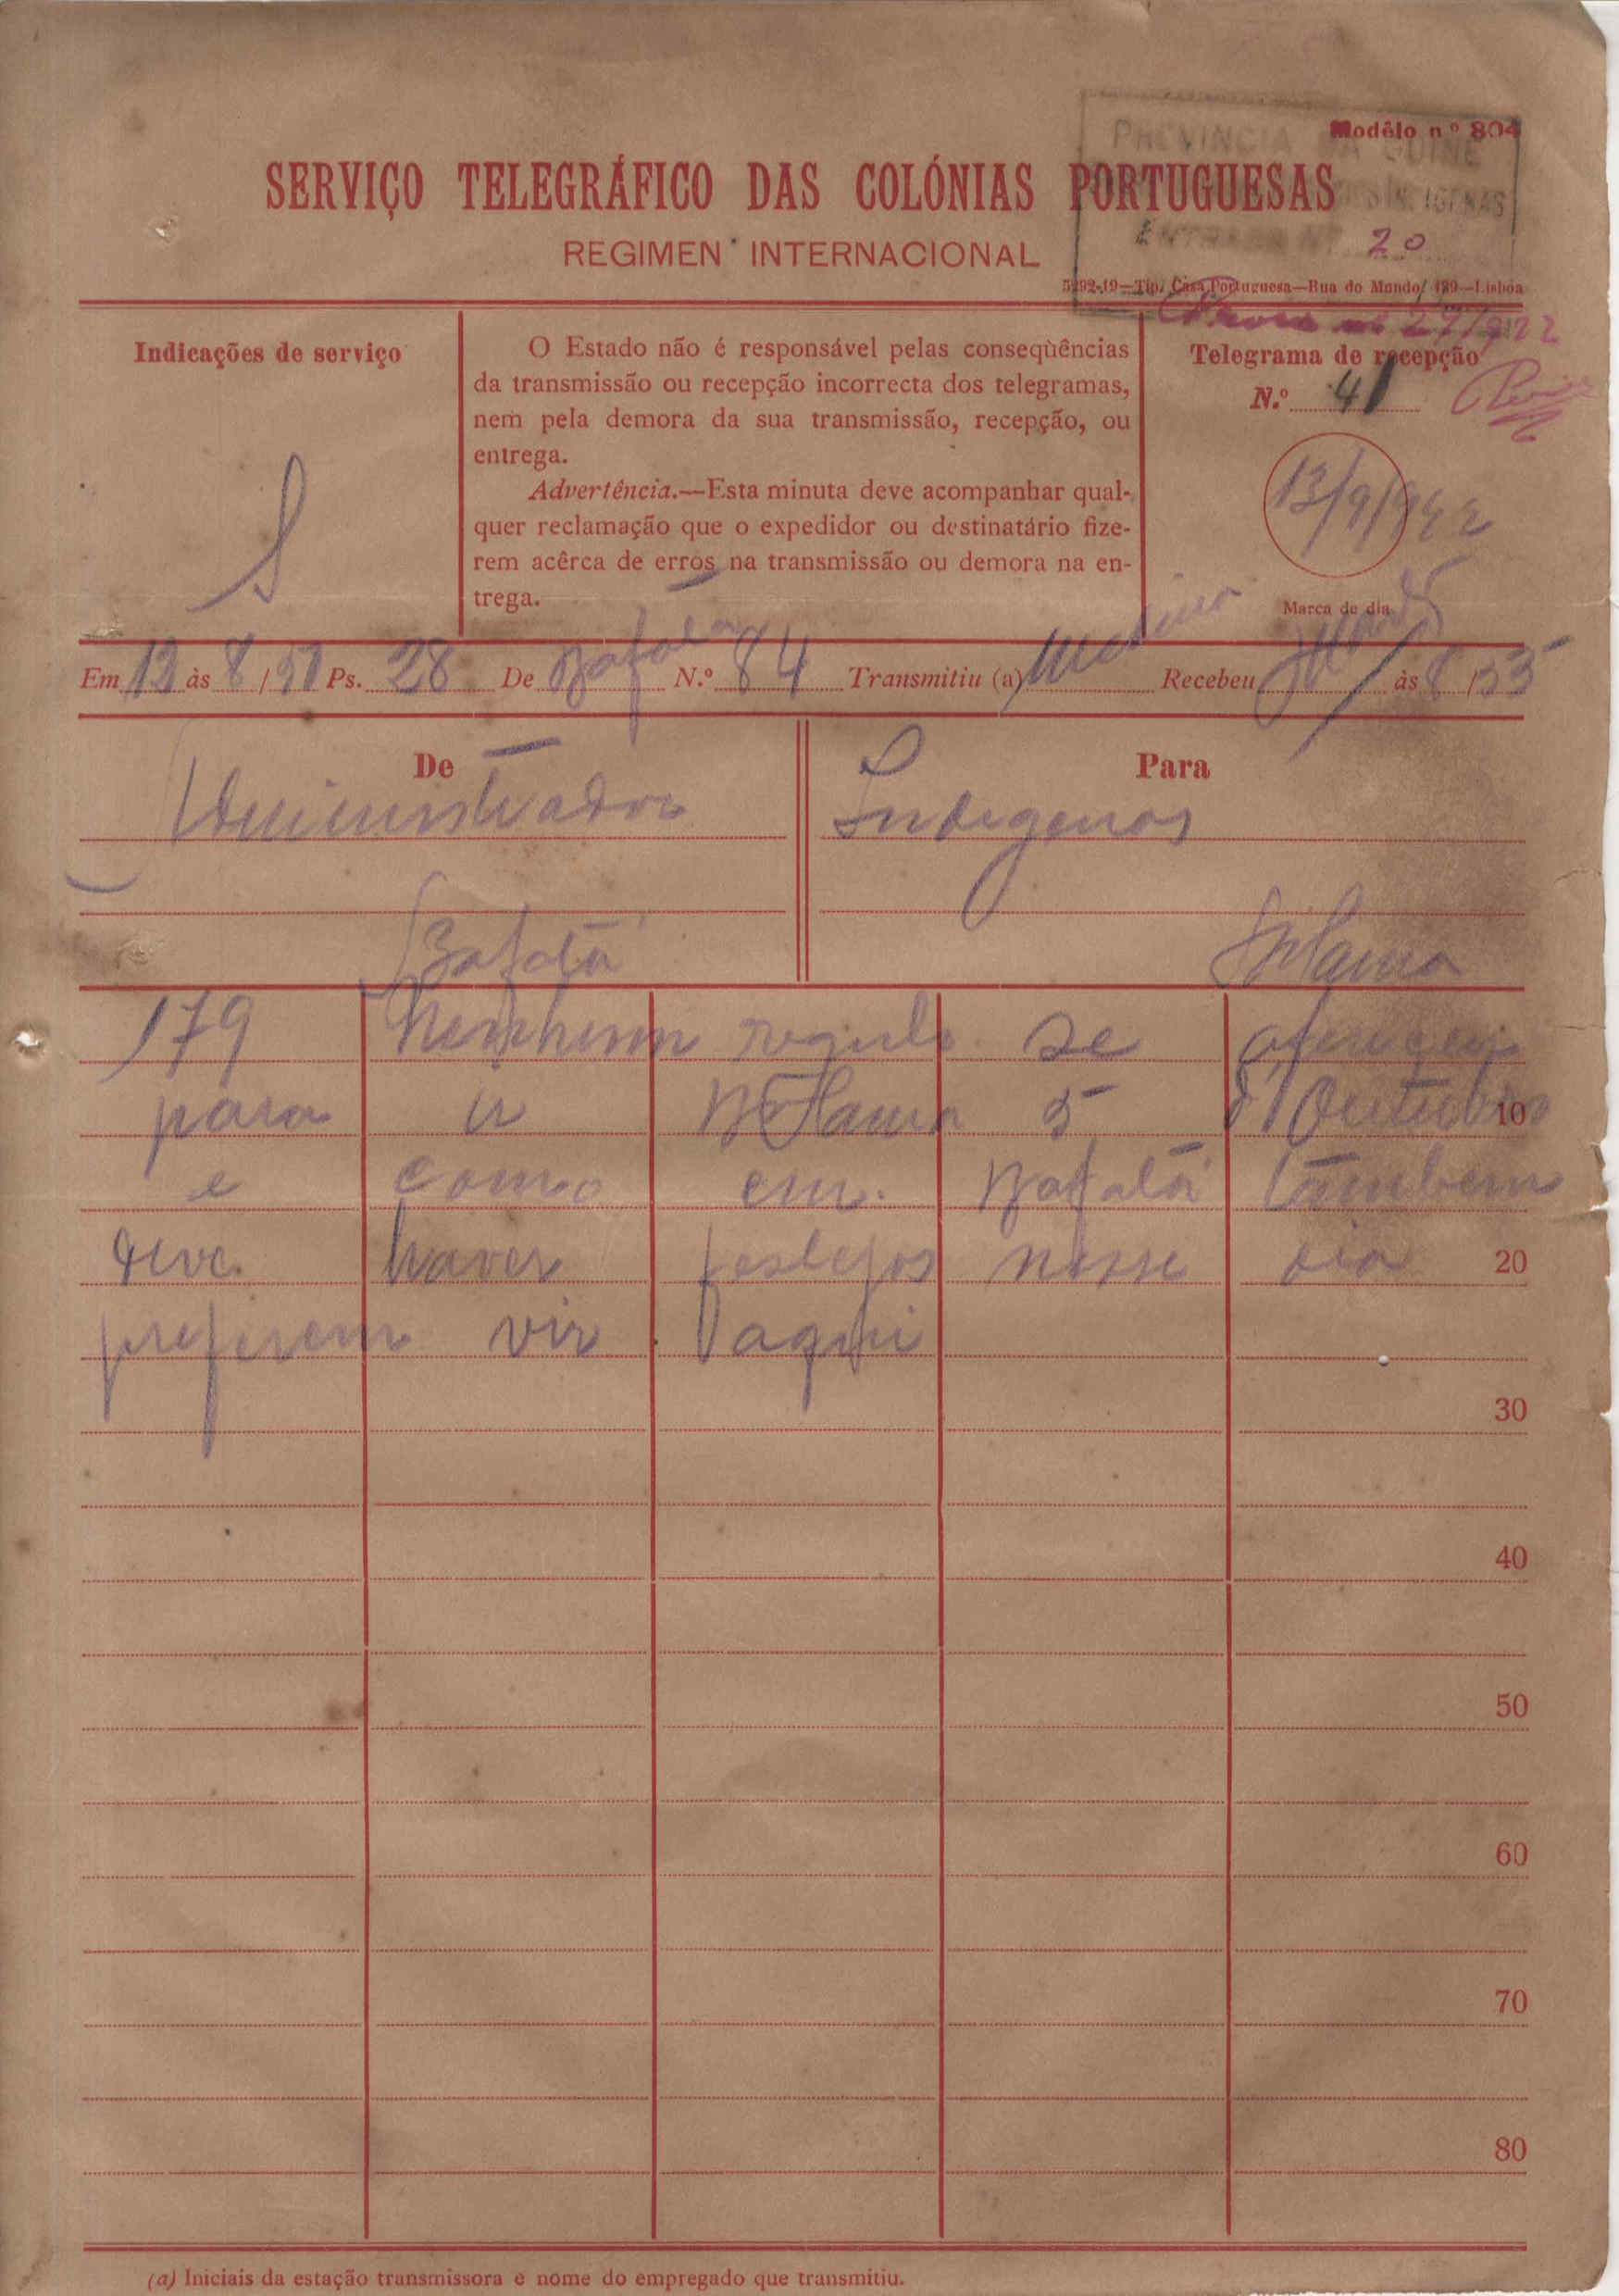 Modêlo n.º 804
PROVINCIA DA GUINÉ
INDIGENAS
ENTRADA Nº 20
SERVIÇO TELEGRÁFICO DAS COLÓNIAS PORTUGUESAS
REGIMEN INTERNACIONAL
5292-19—Tip. Casa Portuguesa—Rua do Mundo, 139—Lisboa
27/9/22
Indicações de serviço
S
O Estado não é responsável pelas conseqùências
da transmissão ou recepção incorrecta dos telegramas,
nem pela demora da sua transmissão, recepção, ou
entrega.
Advertência.—Esta minuta deve acompanhar qual-
quer reclamação que o expedidor ou destinatário fize-
rem acêrca de erros na transmissão ou demora na en-
trega.
Telegrama de recepção
N.º 41
13/9/922
Marca de dia
Em 13 às 8/51 Ps. 28 De Bafatá N.º 84 Transmitiu (a) Recebeu às 8/55
De
Administrador
Bafatá
Para
Indigenas
Bolama
179 Nenhum regulo se ofereceu
para ir Bolama 5 d'Outubro 10
e como em Bafatá tambem
deve haver festejos nesse dia 20
preferem vir aqui
30
40
50
60
70
80
(a) Iniciais da estação transmissora e nome do empregado que transmitiu.